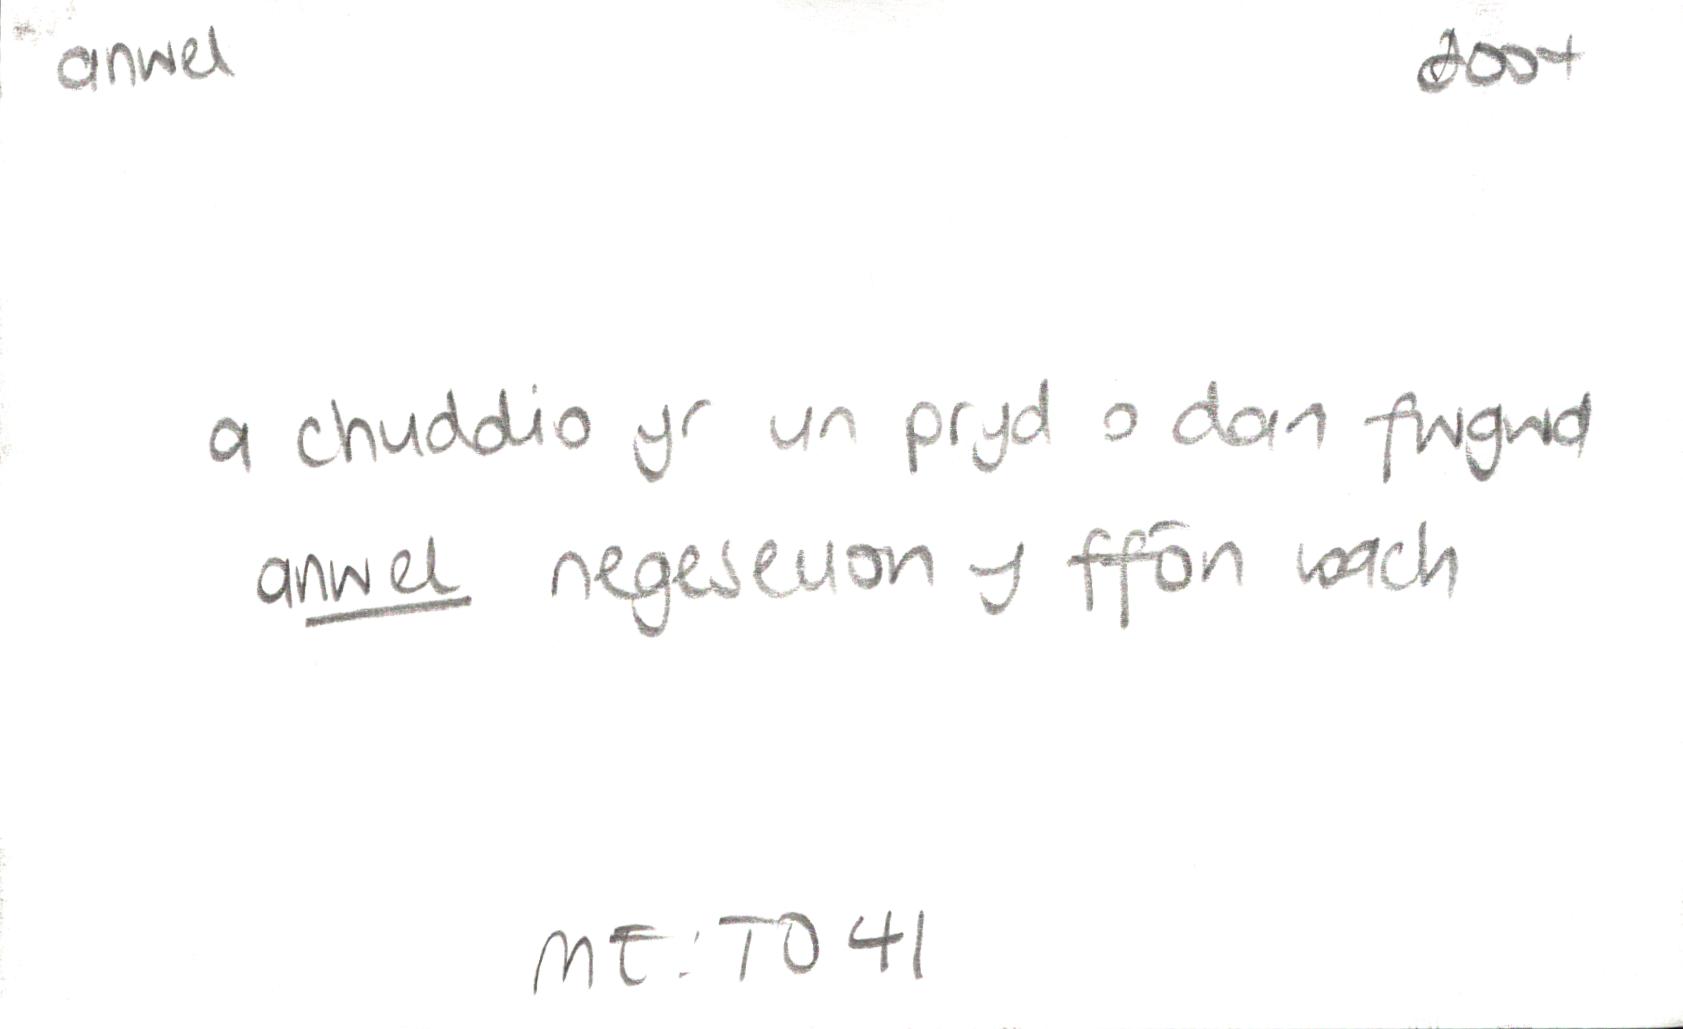 anwel 2004
a chuddio yr un pryd o dan fwgwd
anwel negeseuon y ffôn bach
ME: TO 41